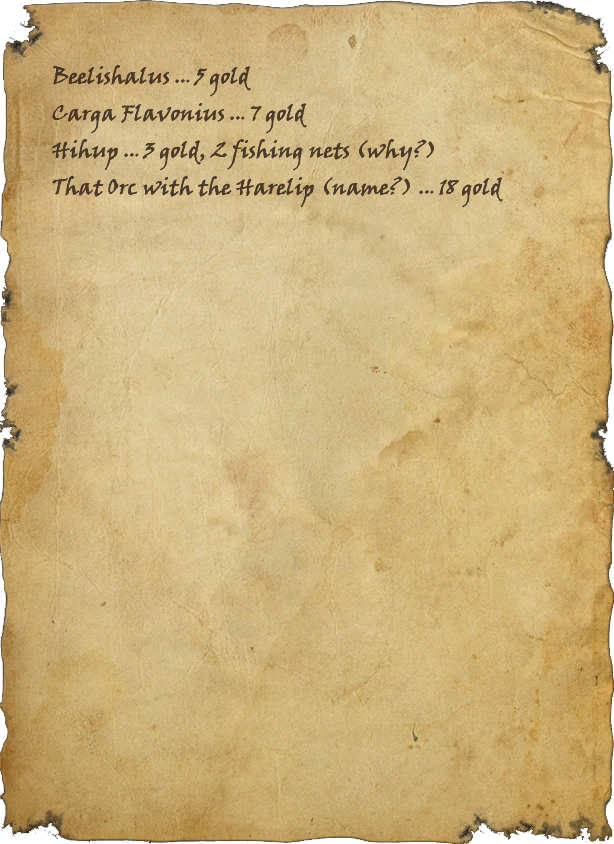 Beelishalus ... 5 gold
Carga Flavonius ... 7 gold
Hihup ... 3 gold, 2 fishing nets (why?)
That Orc with the Harelip (name?) ... 18 gold